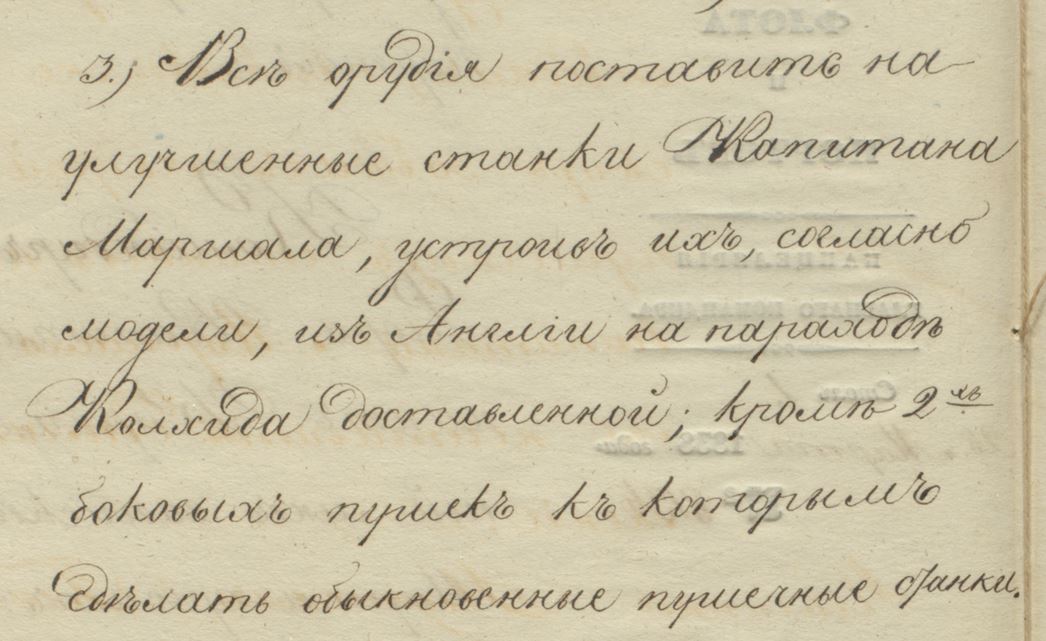 3.) Всѣ орудія поставить на
улучшенные станки Капитана
Маршала, устроивъ ихъ, согласно
модели, изъ Англіи на пароходѣ
Колхида доставленной; кромѣ 2хъ
боковыхъ пушекъ къ которымъ
сдѣлать обыкновенные пушечные станки.